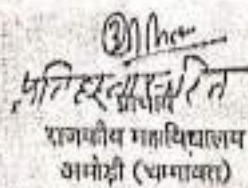 प्रतिहस्ताक्षरित
प्राचार्य
राजकीय महाविद्यालय
अमोड़ी (चम्पावत)